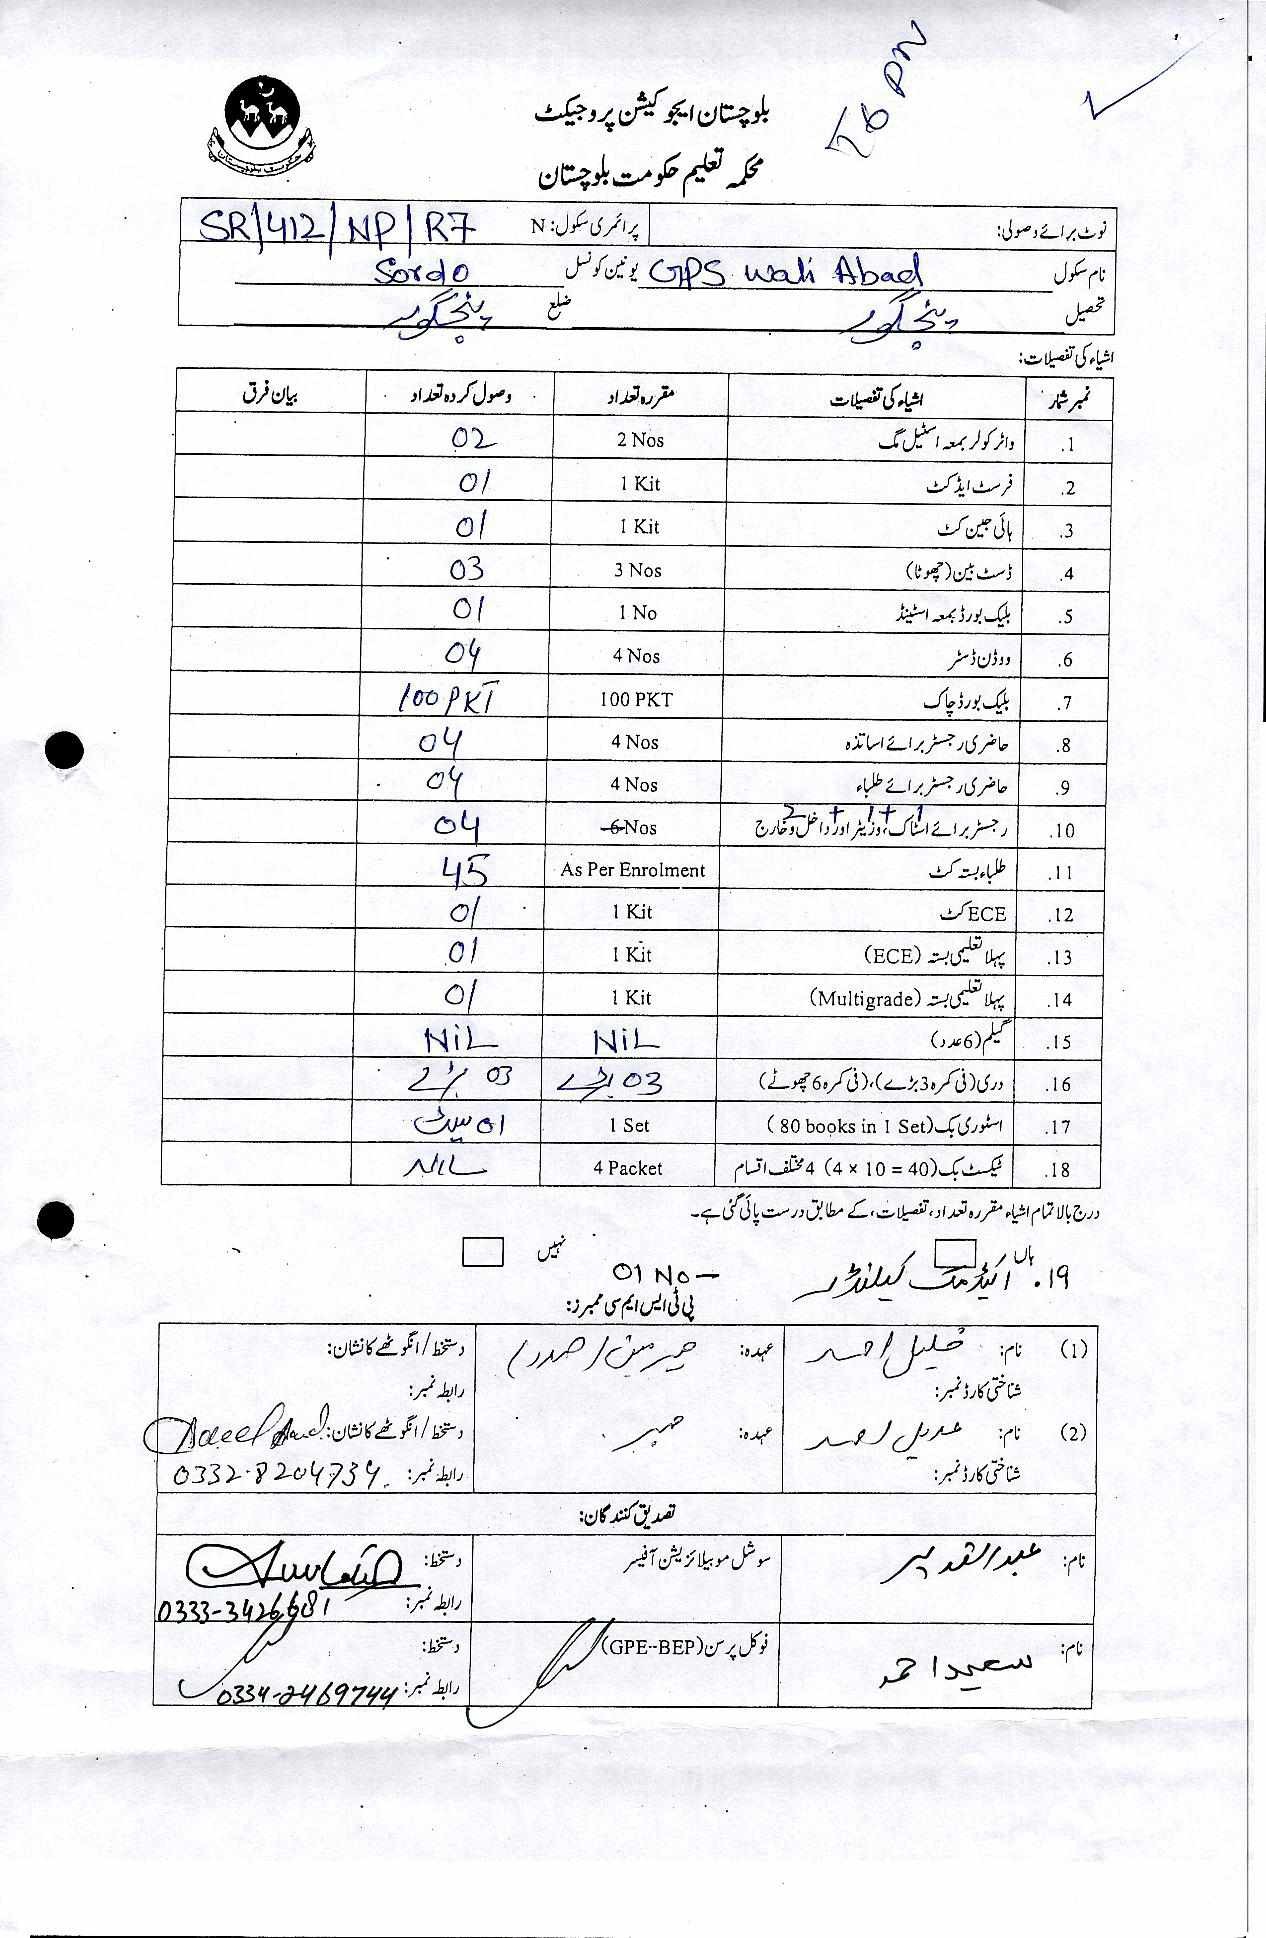 بلوچستان ایجوکیشن پروجیکٹ
محکمہ تعلیم حکومت بلوچستان
نوٹ برائے وصولی: پرائمری سکول: N SR/412/NP/R7
نام سکول GPS Wali Abad یونین کونسل Sordo
تحصیل پنجگور ضلع پنجگور
اشیاء کی تفصیلات:
نمبر شمار اشیاء کی تفصیلات مقررہ تعداد وصول کردہ تعداد بیان فرق
.1 واٹر کولر بمعہ اسٹیل مگ 2 Nos 02
.2 فرسٹ ایڈ کٹ 1 Kit 01
.3 ہائی جین کٹ 1 Kit 01
.4 ڈسٹ بین (چھوٹا) 3 Nos 03
.5 بلیک بورڈ بمعہ اسٹینڈ 1 No 01
.6 ووڈن ڈسٹر 4 Nos 04
.7 بلیک بورڈ چاک 100 PKT 100 PKT
.8 حاضری رجسٹر برائے اساتذہ 4 Nos 04
.9 حاضری رجسٹر برائے طلباء 4 Nos 04
.10 رجسٹر برائے اسٹاک، وزیٹر اور داخل و خارج 6 Nos 04
.11 طلباء بستہ کٹ As Per Enrolment 45
.12 ECE کٹ 1 Kit 01
.13 پہلا تعلیمی بستہ (ECE) 1 Kit 01
.14 پہلا تعلیمی بستہ (Multigrade) 1 Kit 01
.15 گیلم (6 عدد) NiL NiL
.16 دری (فی کمرہ 3 بڑے)، (فی کمرہ 6 چھوٹے) 03 بڑے 03 بڑے
.17 اسٹوری بک (80 books in 1 Set) 1 Set 01 سیٹ
.18 ٹیکسٹ بک (4 x 10 = 40) 4 مختلف اقسام 4 Packet NIL
درج بالا تمام اشیاء مقررہ تعداد، تفصیلات، کے مطابق درست پائی گئی ہے۔
ہاں نہیں
.19 اکیڈمک کیلنڈر 01 No
پی ٹی ایس ایم سی ممبرز:
(1) نام: خلیل احمد عہدہ: چیرمین (صدر) دستخط/انگوٹھے کا نشان:
شناختی کارڈ نمبر: رابطہ نمبر:
(2) نام: عدیل احمد عہدہ: ممبر دستخط/انگوٹھے کا نشان:
شناختی کارڈ نمبر: رابطہ نمبر: 0332-8204739
تصدیق کنندگان:
نام: عبدالقدیر سوشل موبیلائزیشن آفیسر دستخط:
رابطہ نمبر: 0333-3426681
نام: سعید احمد فوکل پرسن (GPE--BEP) دستخط:
رابطہ نمبر: 0334-2469744